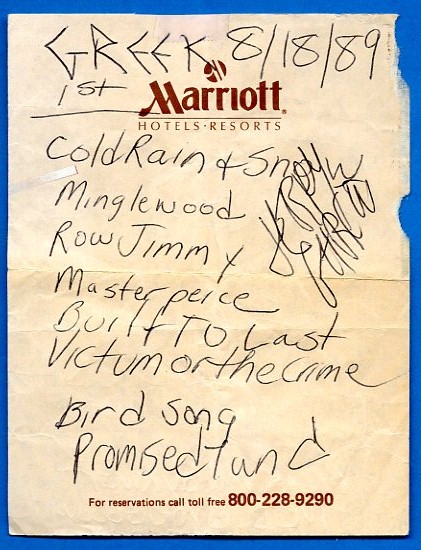 GREEK 8/18/89
1st
Marriott
HOTELS·RESORTS
Cold Rain & Snow
Minglewood
Row Jimmy
Masterpeice
Built To Last
Victum or the Crime
Bird Song
Promised Land
For reservations call toll free 800-228-9290